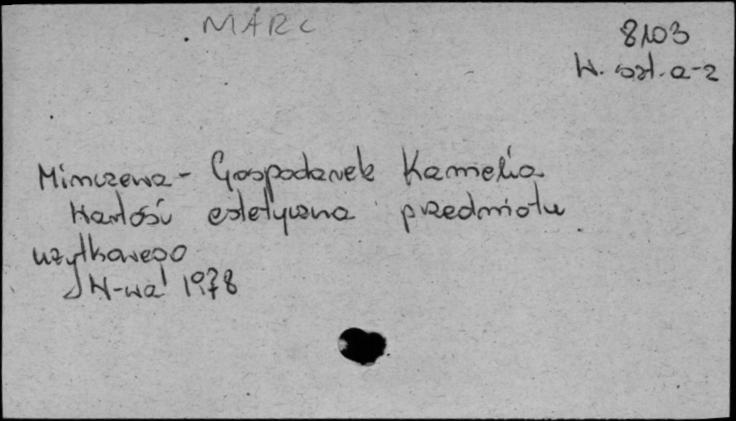 MARC
8103
W. szt. a-z
Minczewa - Gospodarek Kamelia
Wartość estetyczna przedmiotu
użytkowego
W-wa 1978